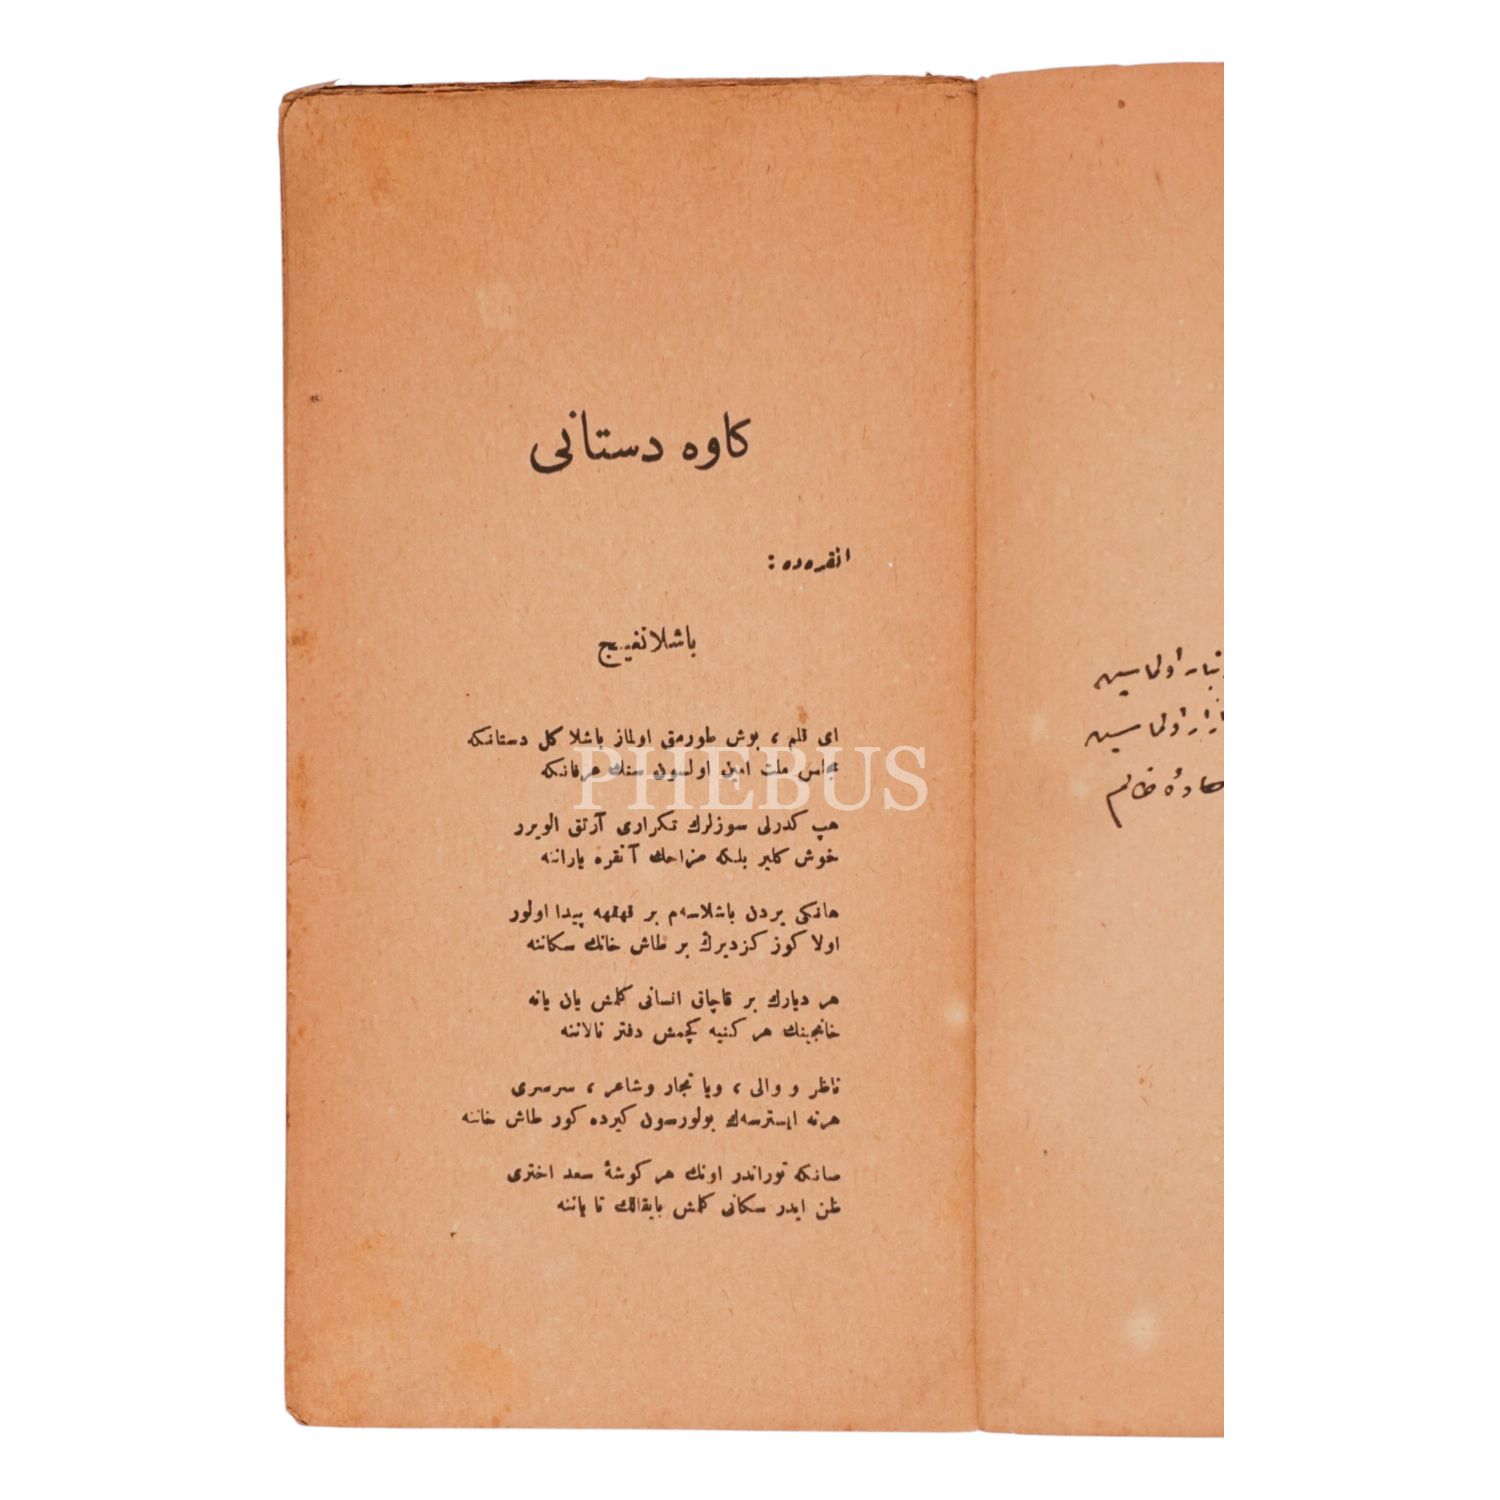 كاوه دستانى
انقره‌ده :
باشلانغيج
اى قلم ، بوش طورمق اولماز باشلا كل دستانكه
مجلس ملت امين اولسون سنك عرفانكه
هپ كدرلى سوزلرك تكرارى آرتق الويرر
خوش كلير بلكه مزاحك آنقره يارانه
هانكى يردن باشلاسه‌م بر قهقهه پيدا اولور
اولا كوز كزديرك بر طاش خانك سكاننه
هر ديارك بر قاچاق انسانى كلمش يان يانه
خانجينك هر كنيه كچمش دفتر نالاننه
ناظر و والى ، ويا تجار وشاعر ، سرسرى
هرنه ايسترسه‌ك بولورسون كيرده كور طاش خاننه
صانكه توراندر اونك هر كوشهٔ سعد اخترى
ظن ايدر سكانى كلمش بايقالك تا ياننه
اولماسين
اولماسين
PHEBUS